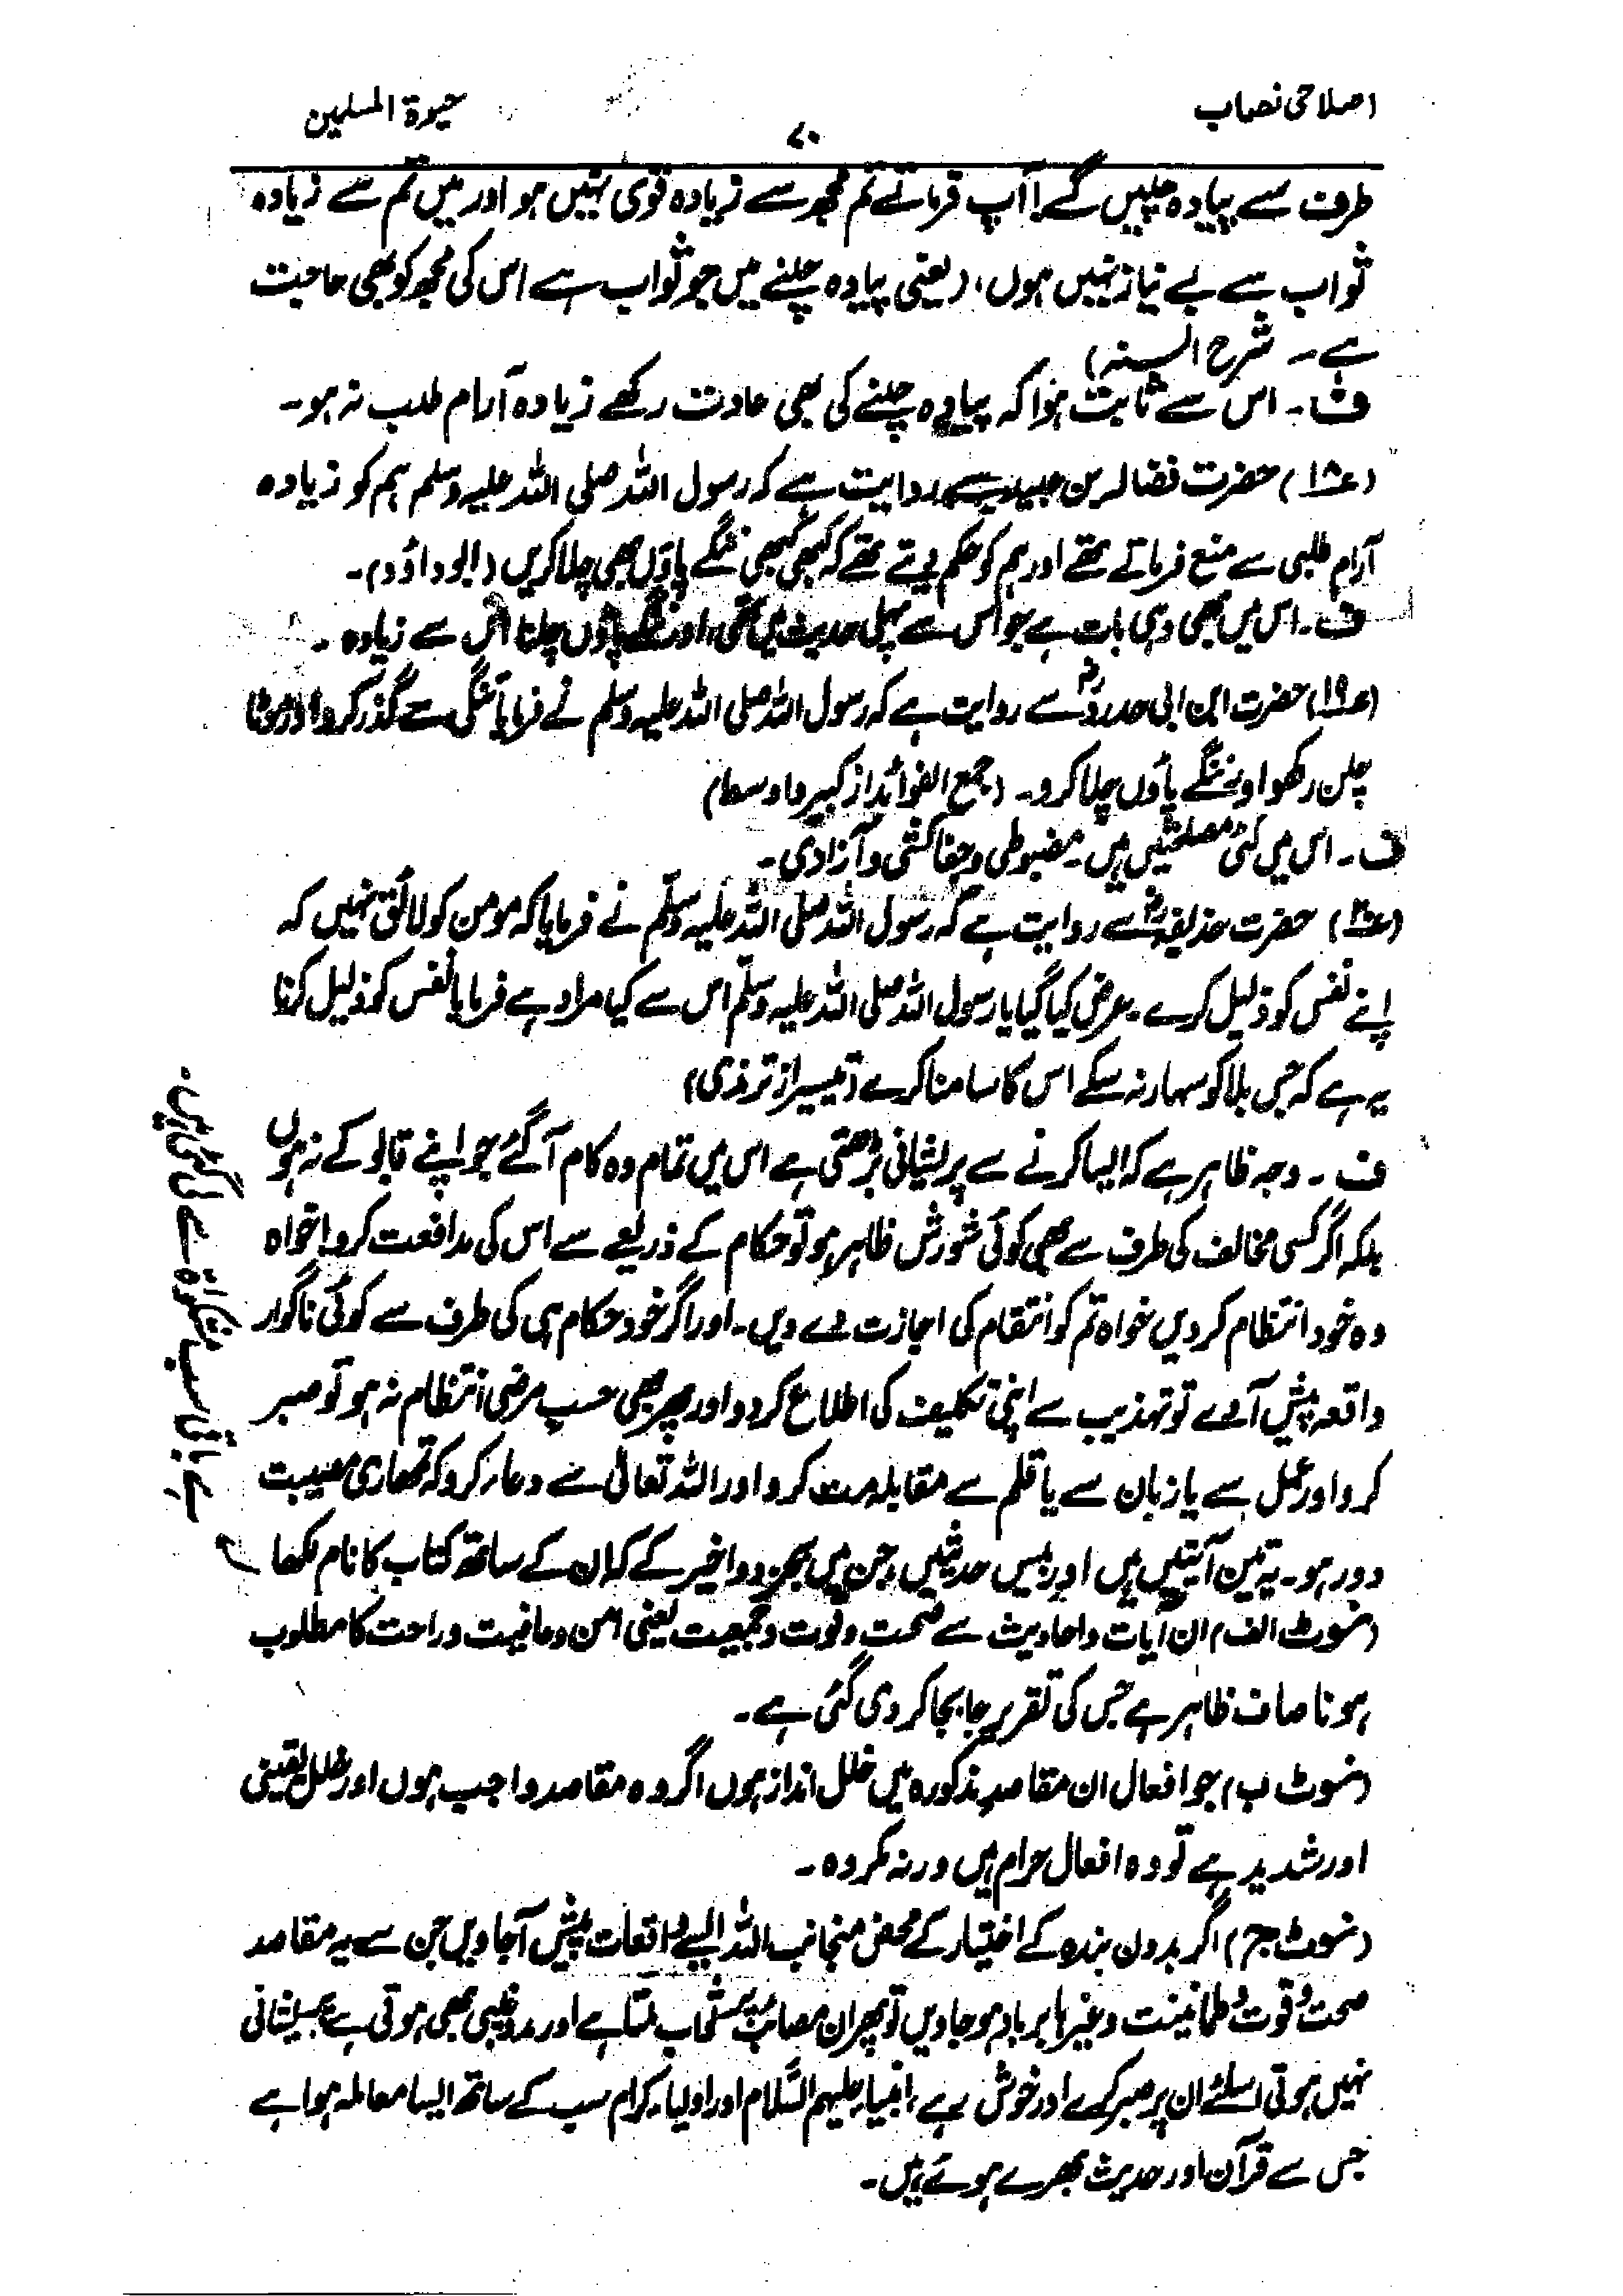 اصلاحی نصاب
۷۰
حیوۃ المسلمین
طرف سے پیادہ چلیں گے! آپ فرماتے تم مجھ سے زیادہ قوی نہیں ہو اور میں تم سے زیادہ
ثواب سے بے نیاز نہیں ہوں، (یعنی پیادہ چلنے میں جو ثواب ہے اس کی مجھ کو بھی حاجت
ہے۔ شرح السنہ)
ف۔ اس سے ثابت ہوا کہ پیادہ چلنے کی بھی عادت رکھے زیادہ آرام طلب نہ ہو۔
(ع۱۸) حضرت فضالہ بن عبید سے روایت ہے کہ رسول اللہ صلی اللہ علیہ وسلم ہم کو زیادہ
آرام طلبی سے منع فرماتے تھے اور ہم کو حکم دیتے تھے کہ کبھی کبھی ننگے پاؤں بھی چلا کریں (ابو داؤد)۔
ف۔ اس میں بھی وہی بات ہے جو اس سے پہلی حدیث میں تھی، اور ننگے پاؤں چلنا اس سے زیادہ۔
(ع۱۹) حضرت ابن ابی حدردؓ سے روایت ہے کہ رسول اللہ صلی اللہ علیہ وسلم نے فرمایا تنگی سے گذر کرو اور موٹا
چلن رکھو اور ننگے پاؤں چلا کرو۔ (جمع الفوائد از کبیر و اوسط)
ف۔ اس میں کئی مصلحتیں ہیں۔ مضبوطی و جفاکشی و آزادی۔
(ع۲۰) حضرت حذیفہؓ سے روایت ہے کہ رسول اللہ صلی اللہ علیہ وسلّم نے فرمایا کہ مومن کو لائق نہیں کہ
اپنے نفس کو ذلیل کرے۔ عرض کیا گیا یا رسول اللہ صلی اللہ علیہ وسلّم اس سے کیا مراد ہے فرمایا نفس کو ذلیل کرنا
یہ ہے کہ جس بلا کو سہار نہ سکے اس کا سامنا کرے (تیسیر از ترمذی)
ف۔ وجہ ظاہر ہے کہ ایسا کرنے سے پریشانی بڑھتی ہے اس میں تمام وہ کام آگئے جو اپنے قابو کے نہ ہوں
بلکہ اگر کسی مخالف کی طرف سے بھی کوئی شورش ظاہر ہو تو حکام کے ذریعے سے اس کی مدافعت کرو، خواہ
وہ خود انتظام کردیں خواہ تم کو انتقام کی اجازت دے دیں۔ اور اگر خود حکام ہی کی طرف سے کوئی ناگوار
واقعہ پیش آوے تو تہذیب سے اپنی تکلیف کی اطلاع کردو اور پھر بھی حسب مرضی انتظام نہ ہو تو صبر
کرو اور عمل سے یا زبان سے یا قلم سے مقابلہ مت کرو اور اللہ تعالیٰ سے دعا، کرو کہ تمھاری مصیبت
دور ہو۔ یہ تین آیتیں ہیں اور بیس حدیثیں، جن میں بجز دو اخیر کے کہ ان کے ساتھ کتاب کا نام لکھا
ہے باقی سب مشکوٰۃ سے لی گئی ہیں۔
(نوٹ الف) ان آیات و احادیث سے صحت و قوت و جمعیت یعنی امن و عافیت و راحت کا مطلوب
ہونا صاف ظاہر ہے جس کی تقریر جا بجا کر دی گئی ہے۔
(نوٹ ب) جو افعال ان مقاصد مذکورہ میں خلل انداز ہوں اگر وہ مقاصد واجب ہوں اور خلل یقینی
اور شدید ہے تو وہ افعال حرام ہیں ورنہ مکروہ۔
(نوٹ ج) اگر بدون بندہ کے اختیار کے محض منجانب اللہ ایسے واقعات پیش آجاویں جن سے یہ مقاصد
صحت و قوت و طمانینت وغیرہا برباد ہوجاویں تو پھر ان مصائب پر ثواب ملتا ہے اور مدد غیبی بھی ہوتی ہے پریشانی
نہیں ہوتی اسلئے ان پر صبر کرے اور خوش رہے، انبیاء علیہم السّلام اور اولیاء کرام سب کے ساتھ ایسا معاملہ ہوا ہے
جس سے قرآن اور حدیث بھرے ہوئے ہیں۔